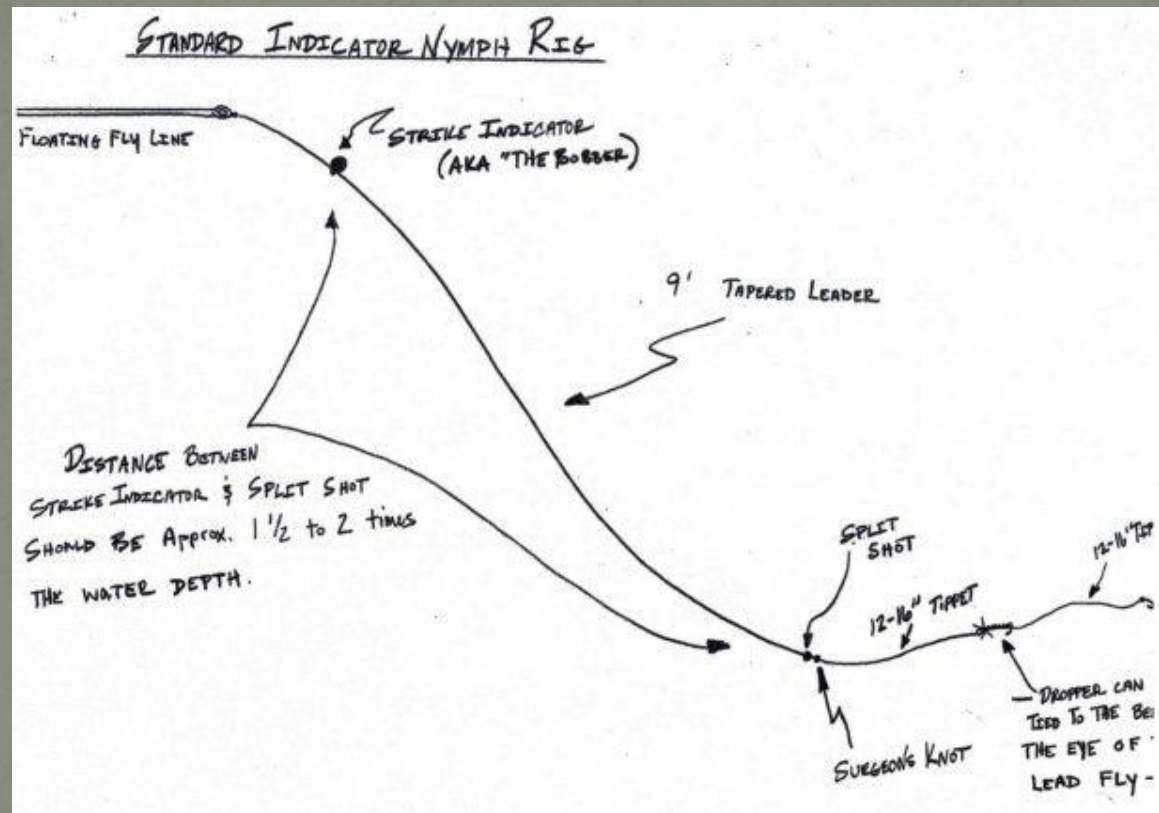 STANDARD INDICATOR NYMPH RIG
FLOATING FLY LINE
STRIKE INDICATOR
(AKA "THE BOBBER)
9' TAPERED LEADER
DISTANCE BETWEEN
STRIKE INDICATOR & SPLIT SHOT
SHOULD BE Approx. 1 1/2 to 2 times
THE WATER DEPTH.
SPLIT
SHOT
12-16" TIPPET
12-16"
SURGEON'S KNOT
DROPPER CAN
TIED TO THE
THE EYE OF
LEAD FLY -